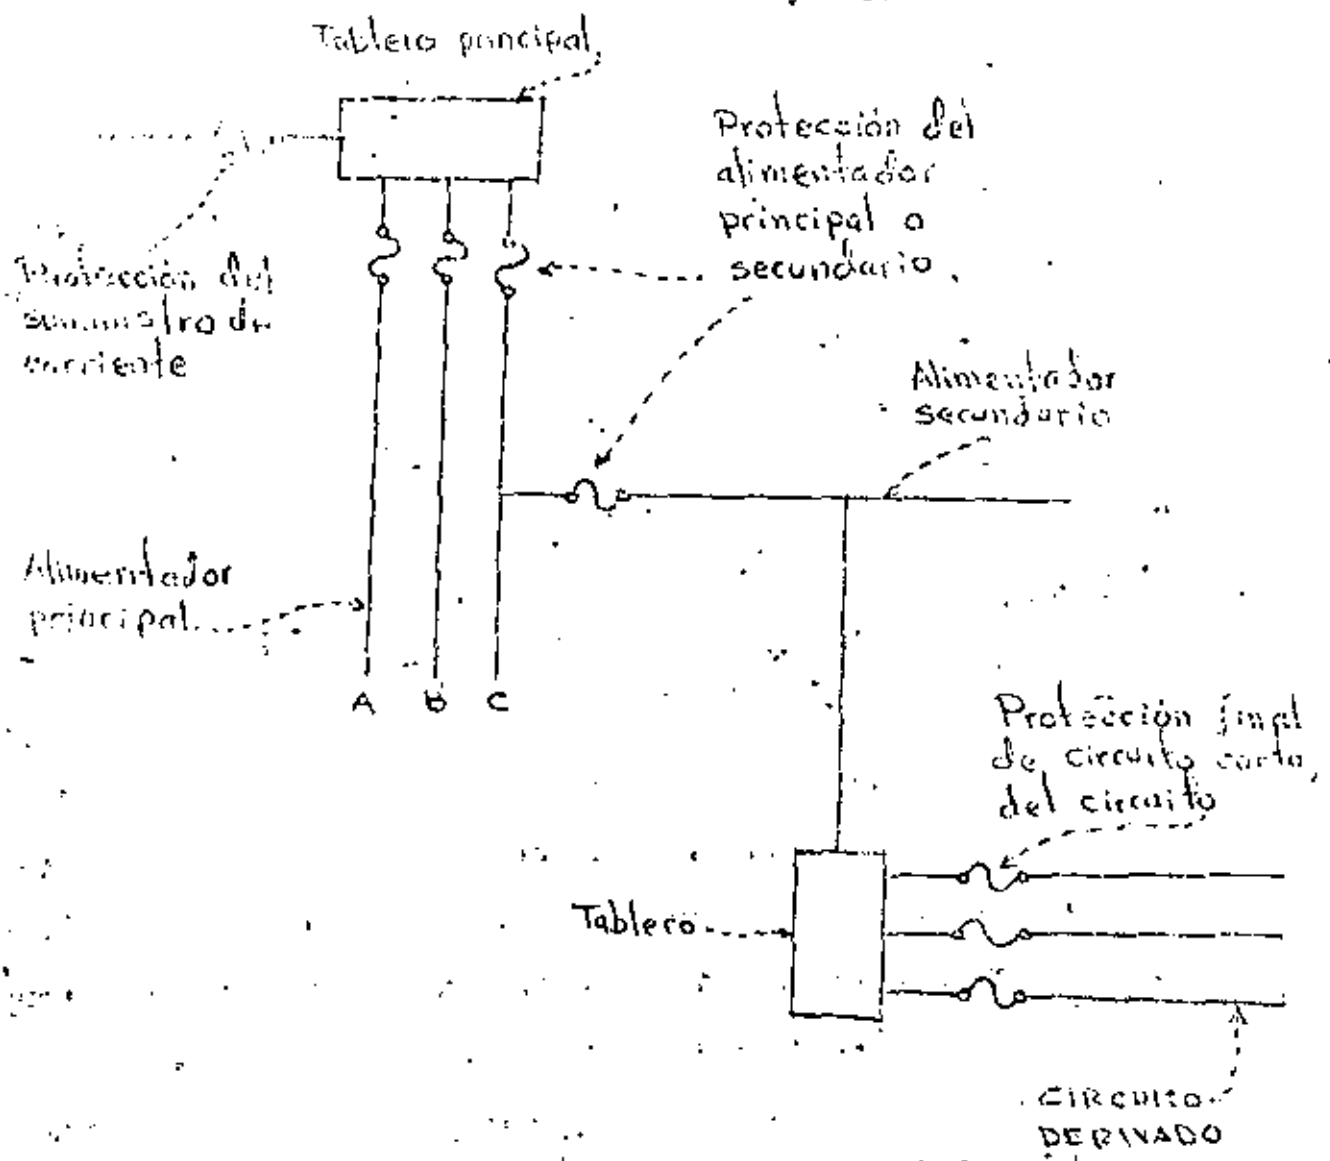 Tablero principal
Protección del
alimentador
principal o
secundario.
Protección del
suministro de
corriente
Alimentador
secundario
Alimentador
principal
A B C
Protección final
de circuito corto,
del circuito
Tablero
CIRCUITO
DERIVADO